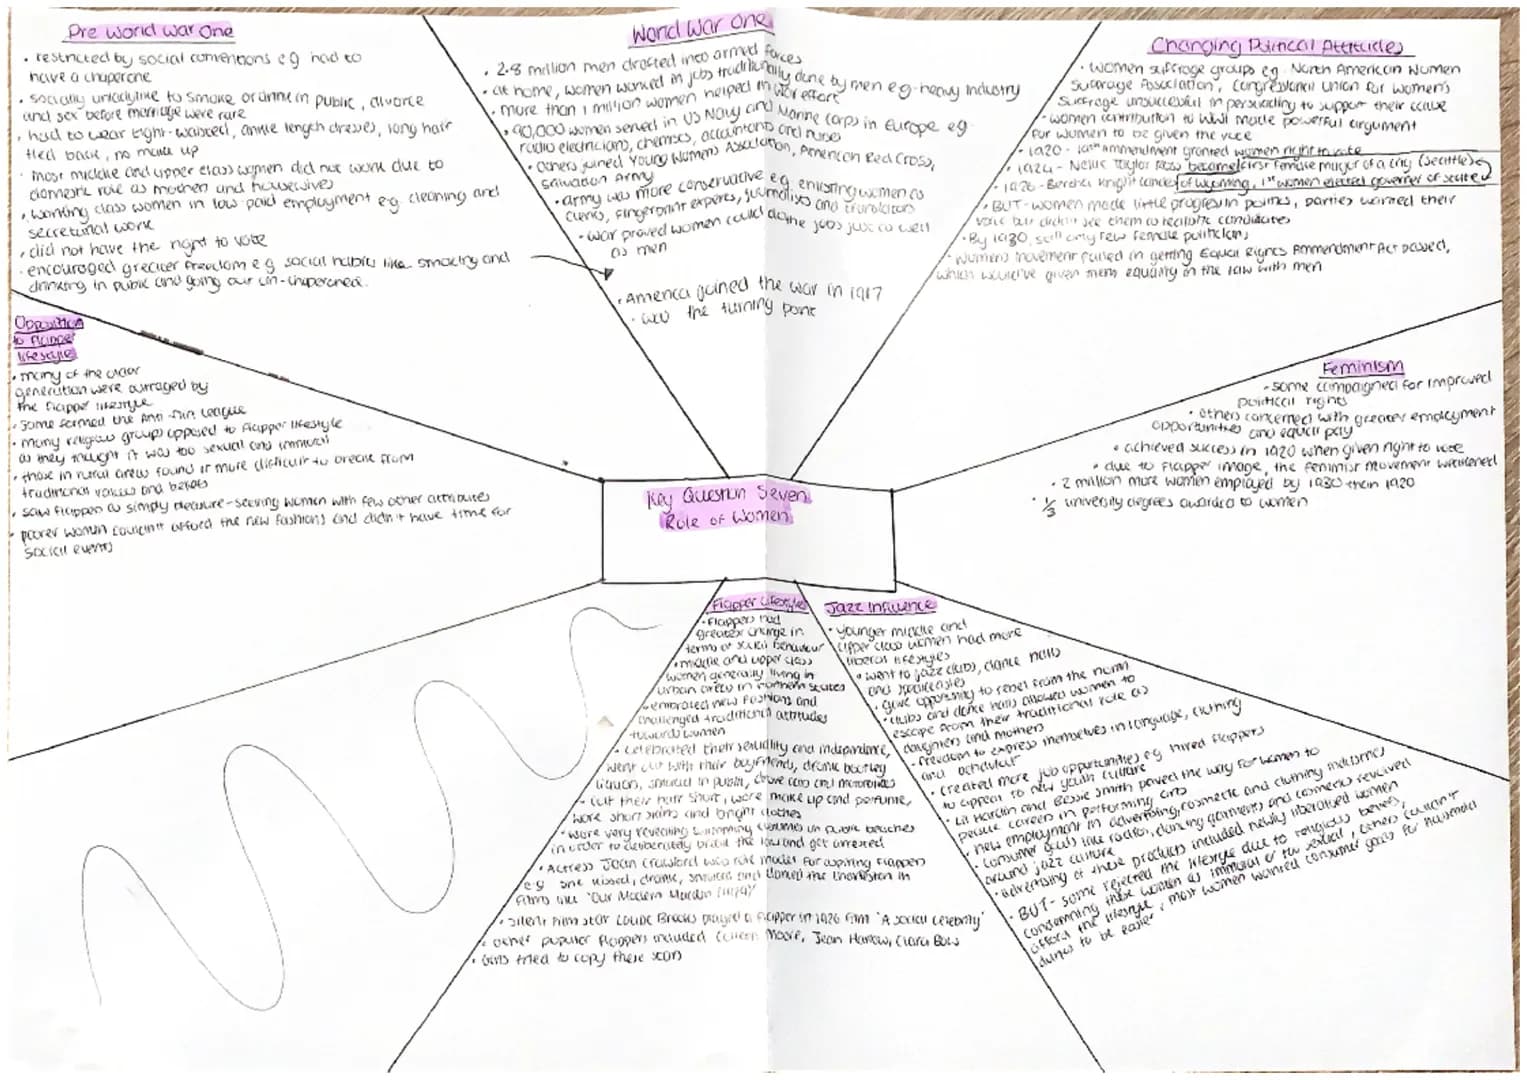 Pre World War One
• restricted by social conventions eg had to
have a chaperone
• socially unladylike to smoke or drink in public, divorce
and sex before marriage were rare
• had to wear tight-waisted, ankle length dresses, long hair
tied back, no make up
• most middle and upper class women did not work due to
domestic role as mothers and housewives
• working class women in low paid employment eg cleaning and
secretarial work
• did not have the right to vote
• encouraged greater freedom eg social habits like smoking and
drinking in public and going out un-chaperoned.
World War One
• 2.8 million men drafted into armed forces
• at home, women worked in jobs traditionally done by men eg heavy industry
• more than 1 million women helped in war effort
• 90,000 women served in US Navy and Marine Corps in Europe eg
radio electricians, chemists, accountants and nurses
• others joined Young Womens Association, American Red Cross,
Salvation Army
• army was more conservative eg enlisting women as
clerks, fingerprint experts, journalists and translators
• war proved women could do the jobs just as well
as men
• America joined the war in 1917
• was the turning point
Changing Political Attitudes
• women suffrage groups eg North American Women
Suffrage Association, Congressional Union for Women's
Suffrage unsuccessful in persuading to support their cause
• women contribution to WWI made powerful argument
for women to be given the vote
• 1920 - 19th ammendment granted women right to vote
• 1924 - Nellie Taylor Ross became first female mayor of a city (Seattle)
• 1926 - Bertha Knight Landes of Wyoming, 1st women elected governor of state
• BUT - women made little progress in politics, parties wanted their
vote but didn't see them as realistic candidates
• By 1930, still only few female politicians
• Women's movement failed in getting Equal Rights Ammendment Act passed,
which would've given them equality in the law with men
Opposition
to Flapper
lifestyle
• many of the older
generation were outraged by
the flapper lifestyle
• some formed the Anti-Flirt League
• many religious groups opposed to flapper lifestyle
as they thought it was too sexual and immoral
• those in rural areas found it more difficult to break from
traditional values and beliefs
• saw flappers as simply pleasure-seeking women with few other attributes
• poorer women couldn't afford the new fashions and didn't have time for
social events
Feminism
• some campaigned for improved
political rights
• others concerned with greater employment
opportunities and equal pay
• achieved success in 1920 when given right to vote
• due to flapper image, the feminist movement weakened
• 2 million more women employed by 1930 than 1920
• 1/3 university degrees awarded to women
Key Question Seven
Role of Women
Flapper Lifestyles
• flappers had
greatest change in
terms of social behaviour
• middle and upper class
women generally living in
urban areas in northern states
• embraced new fashions and
challenged traditional attitudes
towards women
• celebrated their sexuality and independence,
went out with their boyfriends, drank bootleg
liquor, smoked in public, drove cars and motorbikes
• cut their hair short, wore make up and perfume,
wore short skirts and bright clothes
• wore very revealing swimming costumes on public beaches
in order to deliberately break the law and get arrested
• Actress Joan Crawford was role model for aspiring flappers
eg she kissed, drank, smoked and danced the Charleston in
films like 'Our Modern Maiden (1929)'
• silent film star Louise Brooks played a flapper in 1926 film 'A social celebrity'
• other popular flappers included Colleen Moore, Jean Harlow, Clara Bow
• Girls tried to copy these stars
Jazz Influence
• younger middle and
upper class women had more
liberal lifestyles
• went to jazz clubs, dance halls
and speakeasies
• gave opportunity to rebel from the norm
• clubs and dance halls allowed women to
escape from their traditional role as
daughters and mothers
• freedom to express themselves in language, clothing
and behaviour
• created more job opportunities eg hired flappers
to appeal to new youth culture
• Lil Hardin and Bessie Smith paved the way for women to
pursue careers in performing arts
• new employment in advertising, cosmetic and clothing industries
• consumer goods like radios, dancing garments and cosmetics revolved
around jazz culture
• advertising of these products included newly liberated women
• BUT - some rejected the lifestyle due to religious beliefs,
condemning these women as immoral or too sexual, others couldn't
afford the lifestyle, most women wanted consumer goods for household
duties to be easier